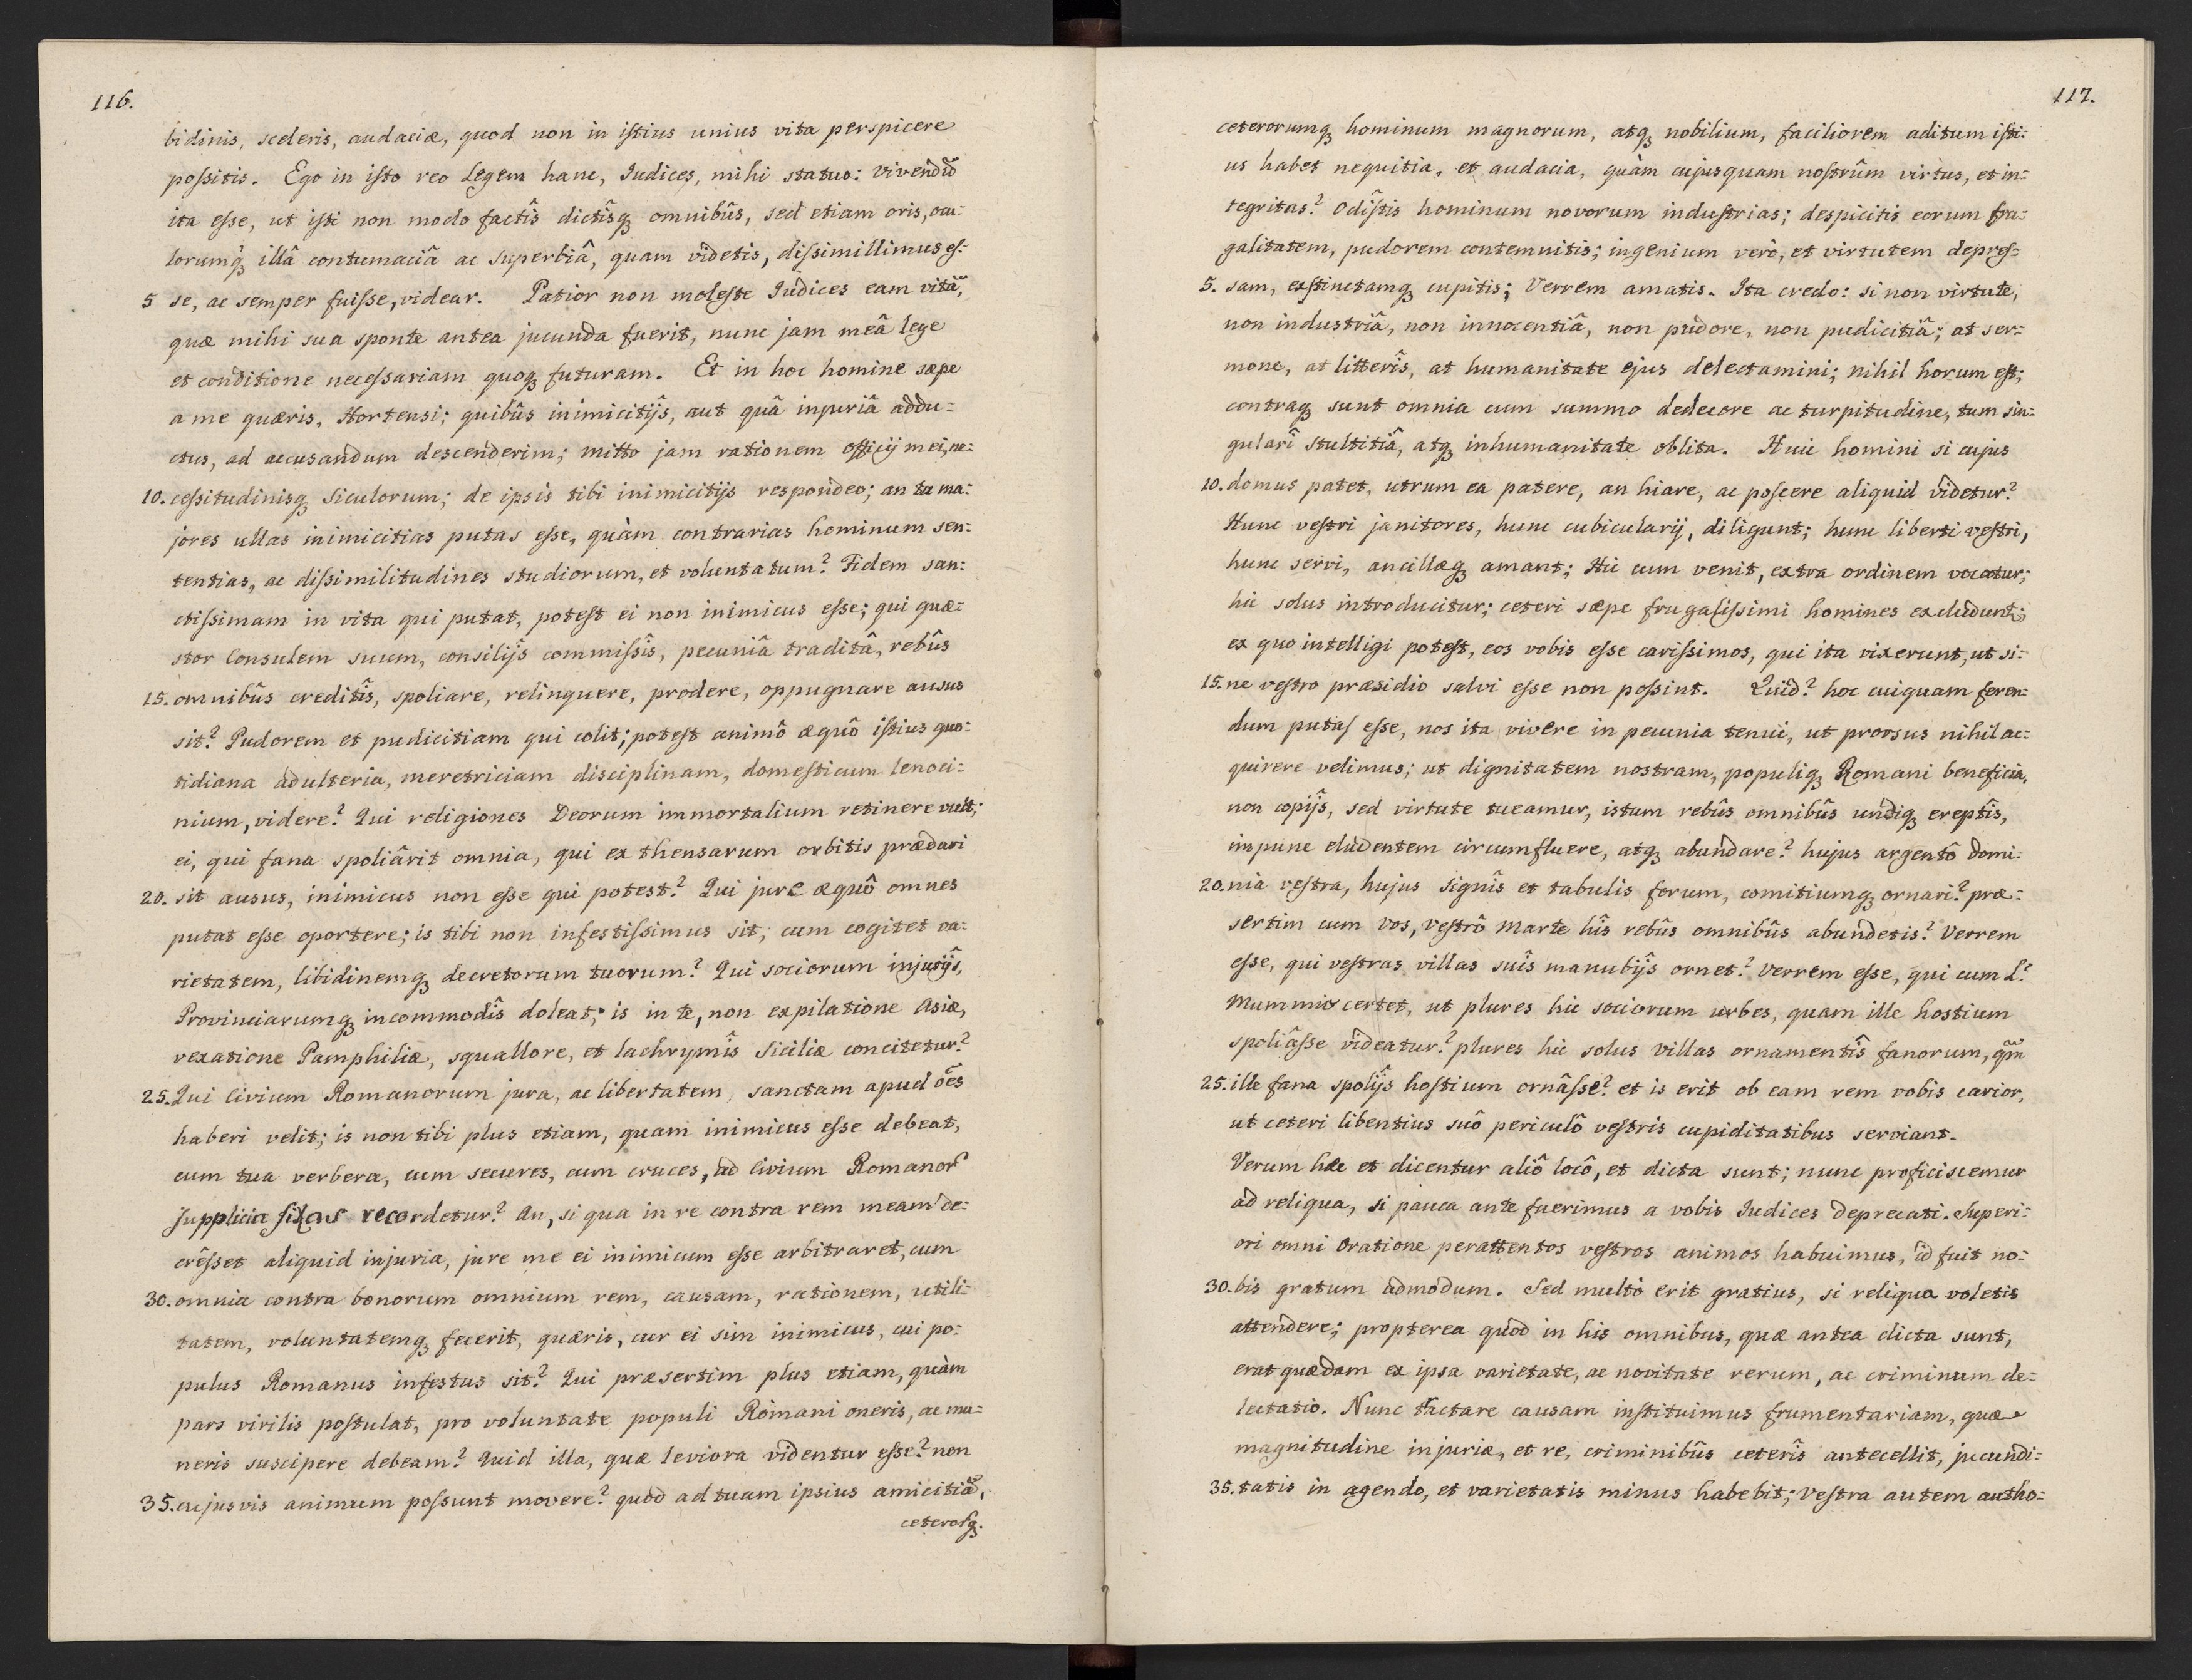 116.
bidinis, sceleris, audaciæ, quod non in iſtius unius vita perspicere
poſsitis. Ego in iſto reo Legem hanc, Iudices, mihi statuo: vivendũ
ita eſse, ut iſti non modo factîs dictîsqꝫ omnibûs, sed etiam oris, ocu:
lorumqꝫ illâ contumaciâ ac superbiâ, quam videtis, diſsimillimus eſ:
5 se, ac semper fuiſse, videar. Patior non moleſte Iudices eam vitã,
quæ mihi sua sponte antea jucunda fuerit, nunc jam meâ lege
et conditione neceſsariam quoqꝫ futuram. Et in hoc homine sæpe
a me quæris, Hortensi; quibûs inimicitijs, aut quâ injuriâ addu:
ctus, ad accusandum descenderim; mitto jam rationem officij mei, ne:
10. ceſsitudinisqꝫ Siculorum; de ipsis tibi inimicitijs respondeo; an tu ma:
jores ullas inimicitias putas eſse, quàm contrarias hominum sen:
tentias, ac diſsimilitudines studiorum, et voluntatum? Fidem san:
ctiſsimam in vita qui putat, poteſt ei non inimicus eſse; qui quæ:
stor Consulem suum, consilijs commiſsîs, pecuniâ traditâ, rebûs
15. omnibûs creditîs, spoliare, relinquere, prodere, oppugnare ausus
sit? Pudorem et pudicitiam qui colit; poteſt animô æquô iſtius quo:
tidiana adulteria, meretriciam disciplinam, domeſticum lenoci:
nium, videre? Qui religiones Deorum immortalium retinere vult;
ei, qui fana spoliârit omnia, qui ex thensarum orbitis prædari
20. sit ausus, inimicus non eſse qui potest? Qui jure æquô omnes
putat eſse oportere; is tibi non infestiſsimus sit, cum cogitet va:
rietatem, libidinemqꝫ decretorum tuorum? Qui sociorum injurijs,
Provinciarumqꝫ incommodîs doleat; is in te, non expilatione Asiæ,
vexatione Pamphiliæ, squallore, et lachrymîs Siciliæ concitetur?
25. Qui Civium Romanorum jura, ac libertatem, sanctam apud oẽs
haberi velit; is non tibi plus etiam, quam inimicus eſse debeat,
cum tua verbera, cum secures, cum cruces, ad Civium Romanor
supplicia fixas recordetur? An, si qua in re contra rem meam de:
crêſset aliquid injuria, jure me ei inimicum eſse arbitraret, cum
30. omnia contra bonorum omnium rem, causam, rationem, utili:
tatem, voluntatemqꝫ fecerit, quæris, cur ei sim inimicus, cui po:
pulus Romanus infestus sit? Qui præsertim plus etiam, quàm
pars virilis poſtulat, pro voluntate populi Romani oneris, ac mu:
neris suscipere debeam? Quid illa, quæ leviora videntur eſse? non
35. cujusvis animum poſsunt movere? quod ad tuam ipsius amicitiã,
ceterosqꝫ.
117.
ceterorumqꝫ hominum magnorum, atqꝫ nobilium, faciliorem aditum iſti:
us habet nequitia, et audacia, quàm cujusquam noſtrûm virtus, et in:
tegritas? Odiſtis hominum novorum induſtrias; despicitis eorum fru:
galitatem, pudorem contemnitis; ingenium verò, et virtutem depreſ:
5. sam, exſtinctamqꝫ cupitis; Verrem amatis. Ita credo: si non virtute,
non industriâ, non innocentiâ, non pudore, non pudicitiâ; at ser:
mone, at litterîs, at humanitate ejus delectamini; nihil horum eſt;
contraqꝫ sunt omnia cum summo dedecore ac turpitudine, tum sin:
gularî stultitiâ, atqꝫ inhumanitate oblita. Huic homini si cujus
10. domus patet, utrum ea patere, an hiare, ac poſcere aliquid videtur?
Hunc veſtri janitores, hunc cubicularij, diligunt; hunc liberti veſtri,
hunc servi, ancillæqꝫ amant; Hic cum venit, extra ordinem vocatur;
hic solus introducitur; ceteri sæpe frugaliſsimi homines excludunt;
ex quo intelligi poteſt, eos vobis eſse cariſsimos, qui ita vixerunt, ut si:
15. ne veſtro præsidio salvi eſse non poſsint. Quid? hoc cuiquam feren:
dum putaſ eſse, nos ita vivere in pecunia tenui, ut prorsus nihil ac:
quirere velimus; ut dignitatem nostram, populiqꝫ Romani beneficia,
non copijs, sed virtute tueamur, istum rebûs omnibûs undiqꝫ ereptîs,
impune eludentem circumfluere, atqꝫ abundare? hujus argentô domi:
20. nia veſtra, hujus signîs et tabulis forum, comitiumqꝫ ornari? præ:
sertim cum vos, veſtrô Marte hîs rebûs omnibûs abundetis? Verrem
eſse, qui veſtras villas suîs manubijs ornet? Verrem eſse, qui cum L.
Mummio certet, ut plures hic sociorum urbes, quam ille hostium
spoliâſse videatur? plures hic solus villas ornamentîs fanorum, qm̃
25. ille fana spolijs hoſtium ornâſse? et is erit ob eam rem vobis carior,
ut ceteri libentius suô periculô veſtris cupiditatibus serviant.
Verum hæc et dicentur aliô locô, et dicta sunt; nunc proficiscemur
ad reliqua, si pauca ante fuerimus a vobis Iudices deprecati. Superi:
ori omni Oratione perattentos veſtros animos habuimus, id fuit no:
30. bis gratum admodum. Sed multò erit gratius, si reliqua voletis
attendere; propterea quod in his omnibus, quæ antea dicta sunt,
erat quædam ex ipsa varietate, ac novitate rerum, ac criminum de:
lectatio. Nunc tractare causam inſtituimus frumentariam, quæ
magnitudine injuriæ, et re, criminibûs ceterîs antecellit, jucundi:
35. tatis in agendo, et varietatis minus habebit; Veſtra autem autho: